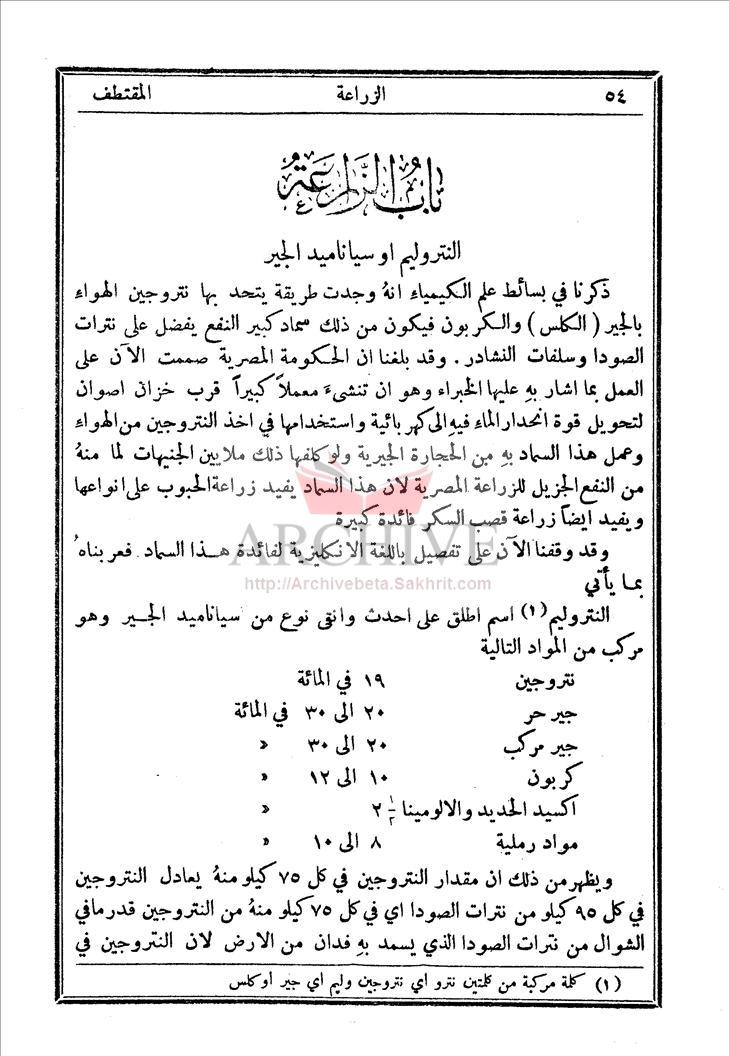 ٥٤ الزراعة المقتطف
باب الزراعة
النتروليم او سياناميد الجير
ذكرنا في بسائط علم الكيمياء انهُ وجدت طريقة يتحد بها نتروجين الهواء
بالجير (الكلس) والكربون فيكون من ذلك سماد كبير النفع يفضل على نترات
الصودا وسلفات النشادر . وقد بلغنا ان الحكومة المصرية صممت الآن على
العمل بما اشار بهِ عليها الخبراء وهو ان تنشىءَ معملاً كبيراً قرب خزان اصوان
لتحويل قوة انحدار الماء فيهِ الى كهربائية واستخدامها في اخذ النتروجين من الهواء
وعمل هذا السماد بهِ من الحجارة الجيرية ولو كلفها ذلك ملايين الجنيهات لما منهُ
من النفع الجزيل للزراعة المصرية لان هذا السماد يفيد زراعة الحبوب على انواعها
ويفيد ايضاً زراعة قصب السكر فائدة كبيرة
ARCHIVE
وقد وقفنا الآن على تفصيل باللغة الانكليزية لفائدة هذا السماد فعربناهُ
http://Archivebeta.Sakhrit.com
بما يأتي
النتروليم (١) اسم اطلق على احدث وانقى نوع من سياناميد الجير وهو
مركب من المواد التالية
نتروجين ١٩ في المائة
جير حر ٢٠ الى ٣٠ في المائة
جير مركب ٢٠ الى ٣٠ »
كربون ١٠ الى ١٢ »
اكسيد الحديد والالومينا ٢ ١/٢ »
مواد رملية ٨ الى ١٠ »
ويظهر من ذلك ان مقدار النتروجين في كل ٧٥ كيلو منهُ يعادل النتروجين
في كل ٩٥ كيلو من نترات الصودا اي في كل ٧٥ كيلو منهُ من النتروجين قدر ما في
الشوال من نترات الصودا الذي يسمد بهِ فدان من الارض لان النتروجين في
(١) كلة مركبة من كلتين نترو اي نتروجين وليم اي جير أو كلس